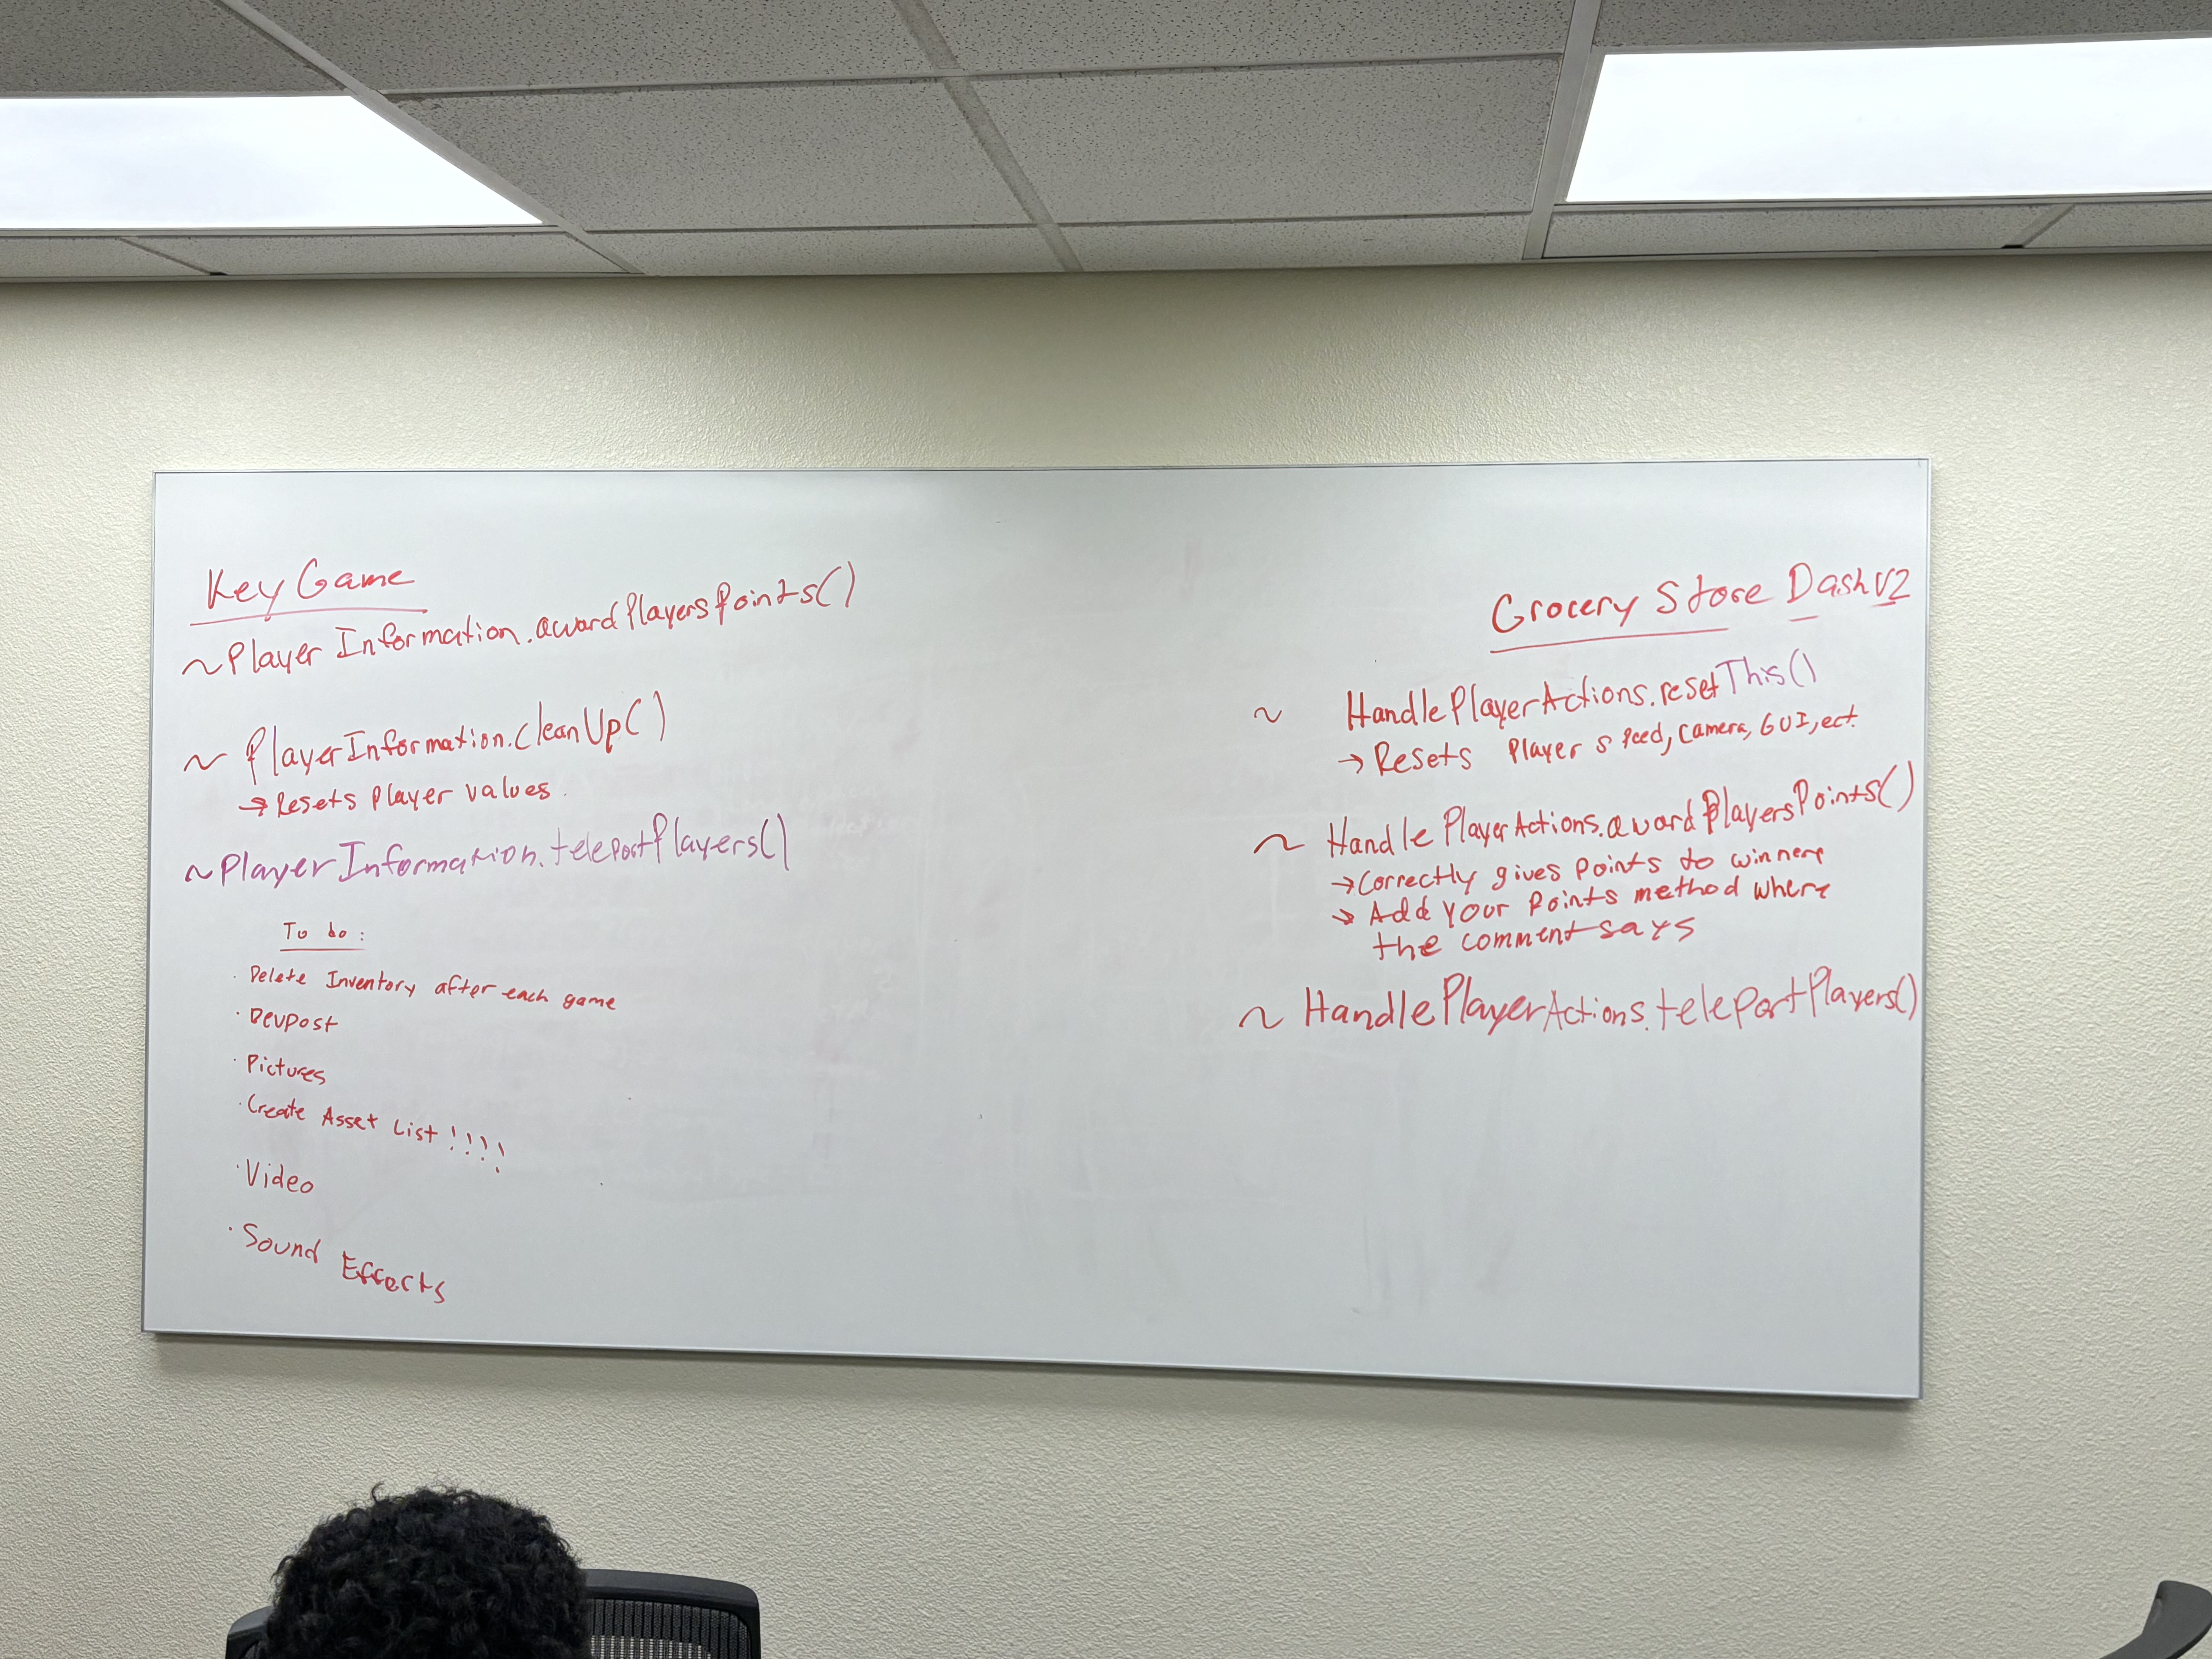 Key Game
~PlayerInformation.awardPlayersPoints()
~ PlayerInformation.cleanUp()
→ Resets Player values.
~PlayerInformation.teleportPlayers()
To do:
· Delete Inventory after each game
· Devpost
· Pictures
· Create Asset List !!!!
· Video
· Sound Effects
Grocery Store Dash V2
~ HandlePlayerActions.resetThis()
→ Resets Player speed, camera, GUI, ect.
~ HandlePlayerActions.awardPlayersPoints()
→ Correctly gives points to winners
→ Add your points method where
the comment says
~ HandlePlayerActions.teleportPlayers()